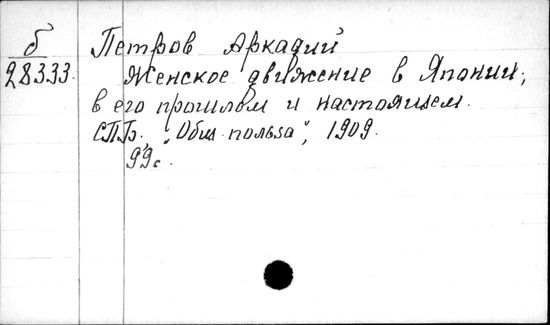 б
28333.
Петров Аркадий
Женское движение в Японии,
в его прошлом и настоящем.
СПБ. "Общ. польза", 1909.
99с.